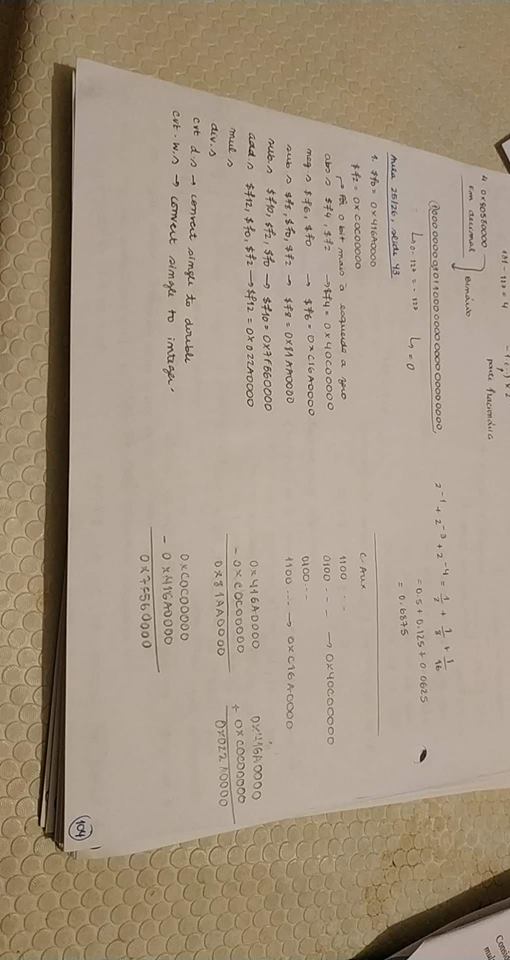 131 - 127 = 4
parte fracionária
4. 0x80580000
Em decimal
Binário
1000 0000 0101 1000 0000 0000 0000 0000
↳ 0-127 = -127 ↳ = 0
2^-1 + 2^-3 + 2^-4 = 1/2 + 1/8 + 1/16
= 0.5 + 0.125 + 0.0625
= 0.6875
Aula 25/26, slide 43
1. $f0 = 0x416A0000
$f2 = 0xC0C00000
→ Pôr o bit mais à esquerda a zero
abs.s $f4, $f2 → $f4 = 0x40C00000
neg.s $f6, $f0 → $f6 = 0xC16A0000
sub.s $f8, $f0, $f2 → $f8 = 0x81AA0000
sub.s $f10, $f2, $f0 → $f10 = 0x7F560000
add.s $f12, $f0, $f2 → $f12 = 0x022A0000
mul.s
div.s
cvt.d.s → convert single to double
cvt.w.s → convert single to integer.
C. Aux
1100 ...
0100 --- → 0x40C00000
0100 ...
1100 --- → 0xC16A0000
0x416A0000
- 0xC0C00000
0x81AA0000
0x416A0000
+ 0xC0C00000
0x022A0000
0xC0C00000
- 0x416A0000
0x7F560000
104